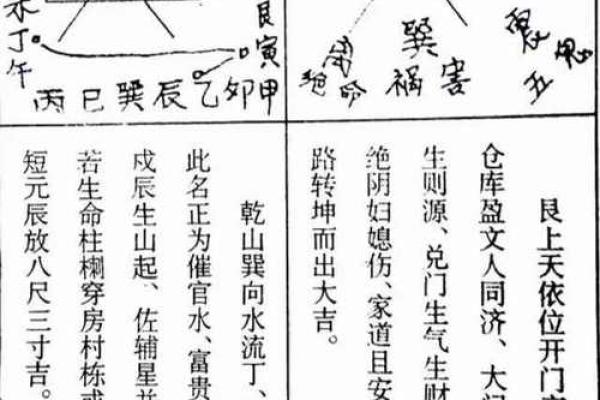 巽
祸害
绝命
五鬼
艮寅
丁
午
丙巳巽辰乙卯甲
艮上天依位开门
仓库盈文人同济、大
生则源、兑门生气生财
绝阴妇媳伤、家道且安
路转坤而出大吉。
乾山巽向水流丁、
此名正为催官水、富贵
戍辰生山起、佐辅星
若生命柱楋穿房村栋
短元辰放八尺三寸吉。